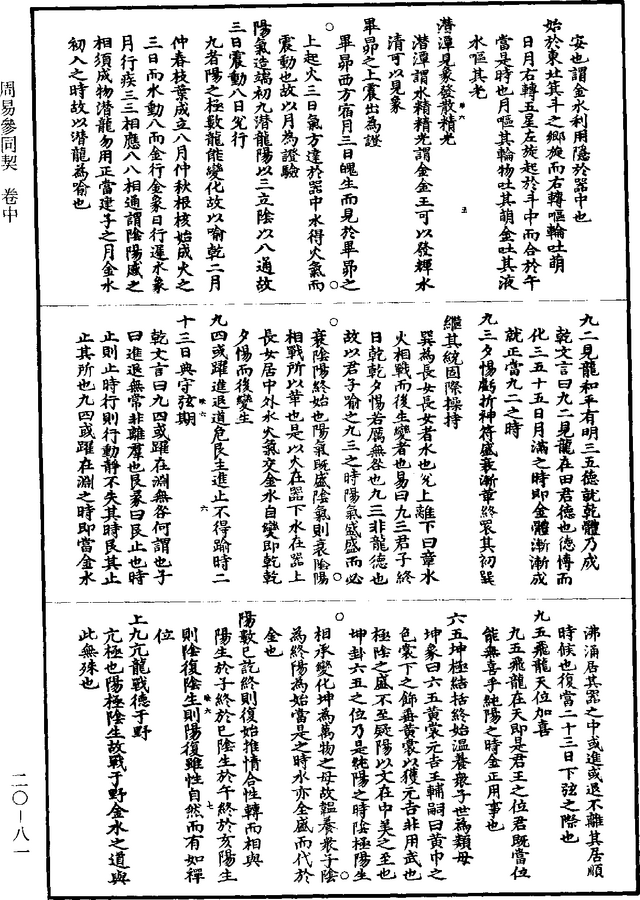 安也謂金水利用隱於器中也
始於東北箕斗之鄉旋而右轉嘔輪吐萌
日月右轉五星左旋起於斗中而合於午
當是時也月嘔其輪物吐其萌金吐其液
水嘔其光
潛潭見象發散精光
潛潭謂水精精光謂金金王可以發輝水
清可以見象
畢昴之上震出為證
畢昴西方宿月三日魄生而見於畢昴之
上起火三日氣方達於器中水得火氣而
震動也故以月為證驗
陽氣造端初九潛龍陽以三立陰以八通故
三日震動八日兌行
九者陽之極數龍能變化故以喻乾二月
仲春枝葉成立八月仲秋根核始成火之
三日而水動八而金行金象日行遲水象
月行疾三三相應八八相通謂陰陽感之
相須成物潛龍勿用正當建子之月金水
初入之時故以潛龍為喻也
九二見龍和平有明三五德就乾體乃成
乾文言曰九二見龍在田君德也德博而
化三五十五日月滿之時即金體漸漸成
就正當九二之時
九三夕惕虧折神符盛衰漸革終還其初巽
繼其統固際操持
巽為長女長女者水也兌上離下曰章水
火相戰而後生變者也易曰九三君子終
日乾乾夕惕若厲無咎也九三非龍德也
故以君子喻之九三之時陽氣盛盛而必
衰陰陽終始也陽氣既盛陰氣則衰陰陽
相戰所以革也是以火在器下水在器上
長女居中外水火氣交金水自變即乾乾
夕惕而後變生
九四或躍進退道危艮主進止不得踰時二
十三日典守弦期
乾文言曰九四或躍在淵無咎何謂也子
曰進退無常非離羣也艮象曰艮止也時
止則止時行則行動靜不失其時艮其止
止其所也九四或躍在淵之時即當金水
沸涌居其器之中或進或退不離其居順
時候也復當二十三日下弦之際也
九五飛龍天位加喜
九五飛龍在天即是君王之位君既當位
能無喜乎純陽之時金正用事也
六五坤極結括終始溫養衆子世為類母
坤象曰六五黃裳元吉王輔嗣曰黃中之
色裳下之飾垂黃裳以獲元吉非用武也
極陰之盛不至疑陽以文在中美之至也
坤卦六五之位乃是純陽之時陰極陽生
相承變化坤為萬物之母故韞養衆子陰
為終陽為始當是之時水亦全盛而代於
金也
陽數已訖終則復始推情合性轉而相與
陽生於子終於巳陰生於午終於亥陽生
則陰復陰生則陽復雖性自然而有如禪
位
上九亢龍戰德于野
亢極也陽極陰生故戰于野金水之道與
此無殊也
周易參同契 卷中
二〇－八一